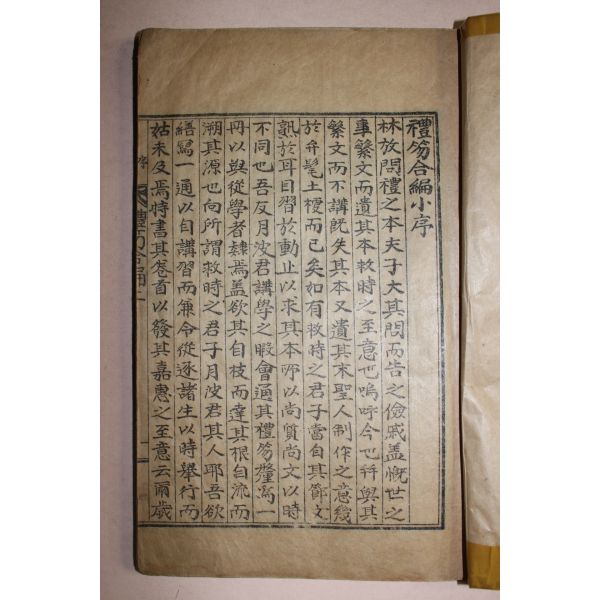 禮笏合編小序
林放問禮之本夫子大其問而告之儉戚盖慨世之
事繁文而遺其本救時之至意也嗚呼今也幷與其
繁文而不講旣失其本又遺其末聖人制作之意幾
於弁髦土梗而已矣如有救時之君子當自其節文
熟於耳目習於動止以求其本所以尚質尚文以時
不同也吾友月波君講學之暇會通其禮笏釐爲一
冊以與從學者隷焉盖欲其自枝而達其根自流而
溯其源也向所謂救時之君子月波君其人耶吾欲
繕寫一通以自講習而兼令從逐諸生以時舉行而
姑未及焉特書其卷首以發其嘉惠之至意云爾歲
序
禮笏合編
一